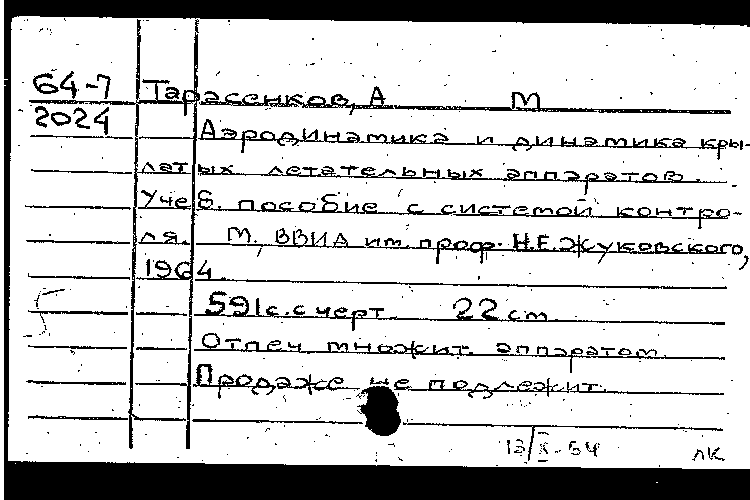 64-7 Тарасенков, А М
2024
Аэродинамика и динамика кры-
латых летательных аппаратов.
Учеб. пособие с системой контро-
ля. М., ВВИА им. проф. Н.Е.Жуковского,
1964.
591с. с черт. 22 см.
Отпеч. множит. аппаратом.
Продаже не подлежит.
лк